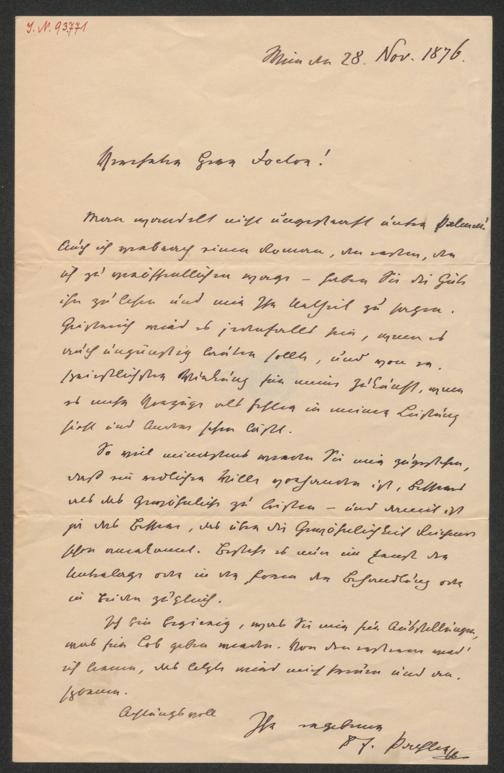 I. N. 93771
28. Nov. 1876.
Verehrter Herr Doctor!
Man wandelt nicht ungestraft unter Palmen!
Auch ich verbrach einen Roman, den ersten, den
ich zu veröffentlichen wage – haben Sie die Güte
ihn zu lesen und mir Ihr Urtheil zu sagen.
wird es jedenfalls sein, wenn es
auch ungünstig lauten sollte, und von
Wirkung für meine Zukunft, wenn
es mehr Vorzüge als Fehler in meiner Leistung
sieht und Andere sehen läßt.
So viel mindestens werden Sie mir zugestehen,
daß ein redlicher Wille vorhanden ist, Besseres
als das Gewöhnliche zu leisten – und damit ist
ja das Bessere, das über die Gewöhnlichkeit
schon anerkannt. Besteht es nun im der
Unterlage oder in der Form der Behandlung oder
in beiden zugleich.
Ich bin begierig, was Sie mir für Ausstellungen,
was für Lob geben werden. Von den ersteren werd'
ich lernen, das letzte wird mich freuen und
spornen.
Achtungsvoll
Ihr ergebener